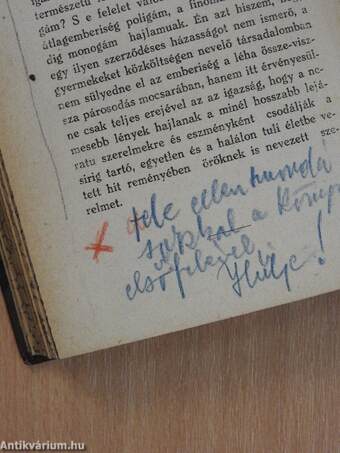 természetű
gám? S e felelet
átlagemberiség poligám, a finoma
dig monogám hajlamuak. Én azt hiszem, hog
egy ilyen szerződéses házasságot nem ismerő, a
gyermekeket közköltségen nevelő társadalomban
nem sülyedne el az emberiség a léha össze-visz-
sza párosodás mocsarában, hanem itt érvényesül-
ne csak teljes erejével az az igazság, hogy a ne-
mesebb lények hajlanak a minél hosszabb lejá-
ratu szerelmekre és eszményként csodálják a
sirig tartó, egyetlen és a halálon tuli életbe ve-
tett hit reményében öröknek is nevezett sze-
relmet.
ellenmondá
a könyv
első felével.
Hülye!
Antikvárium.hu